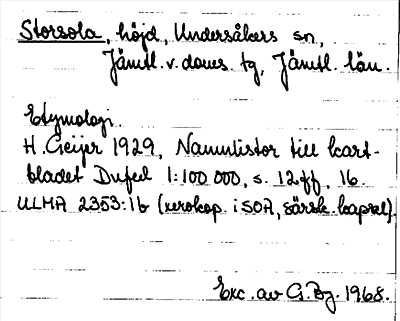 Storsola, höjd, Undersåkers sn,
Jämtl. v. doms tg, Jämtl. län.
Etymologi.
H. Geijer 1929, Namnlistor till kart-
bladet Dufed 1:100 000, s. 12 ff, 16.
ULMA 2353:1b (xerokop. i SOA, särsk. kapsel).
Exc. av G. By. 1968.